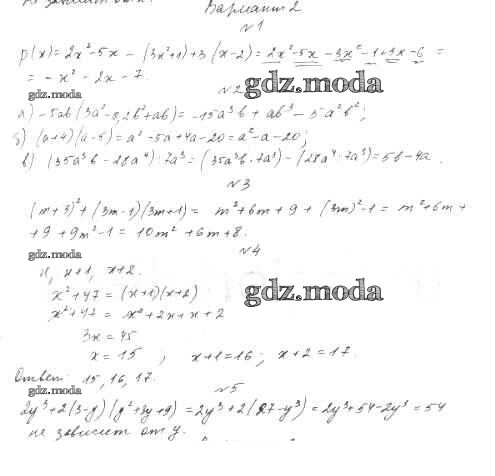 Вариант 2
№1
p(x) = 2x²-5x - (3x²+1)+3(x-2) = 2x²-5x-3x²-1+3x-6 =
= -x² - 2x - 7.
№2
gdz.moda
gdz.moda
а) -5ab(3a²-0,2b²+ab) = -15a³b + ab³ - 5a²b²;
б) (a+4)(a-5) = a² -5a+4a-20 = a²-a-20;
в) (35a³b - 28a⁴) : 7a³ = (35a³b : 7a³) - (28a⁴ : 7a³) = 5b-4a.
№3
(m+3)² + (3m-1)(3m+1) = m²+6m+9+(3m)²-1 = m²+6m+
+9+9m²-1 = 10m² +6m+8.
gdz.moda
№4
n, x+1, x+2.
x²+47 = (x+1)(x+2)
gdz.moda
x²+47 = x²+2x+x+2
3x = 45
x = 15 ; x+1=16; x+2 = 17.
Ответ: 15, 16, 17.
gdz.moda
№5
2y³+2(3-y)(y²+3y+9) = 2y³+2(27-y³) = 2y³+54-2y³ = 54
не зависит от y.